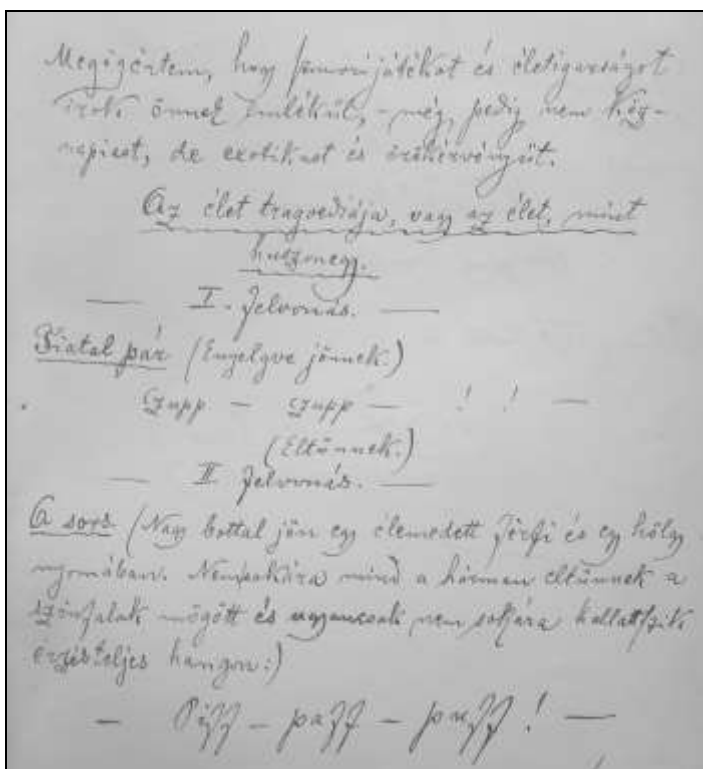 Megígértem, hogy szomorijátékot és életigazságot
irok önnek emlékül, - még pedig nem kéz-
napisat, de exotikust és örökérvényüt.
Az élet tragoediája, vagy az élet, mint
huszonegy.
— I. felvonás. —
Fiatal pár (Enyelgve jönnek.)
Czupp — czupp — ! ! —
(Eltünnek.)
— II. felvonás. —
A sors (Nagy bottal jön egy élemedett férfi és egy hölgy
nyomában. Nemsokára mind a hárman eltünnek a
szinfalak mögött és ugyancsak nem sokára hallatszik
érzésteljes hangon:)
— Piff – paff – puff ! —